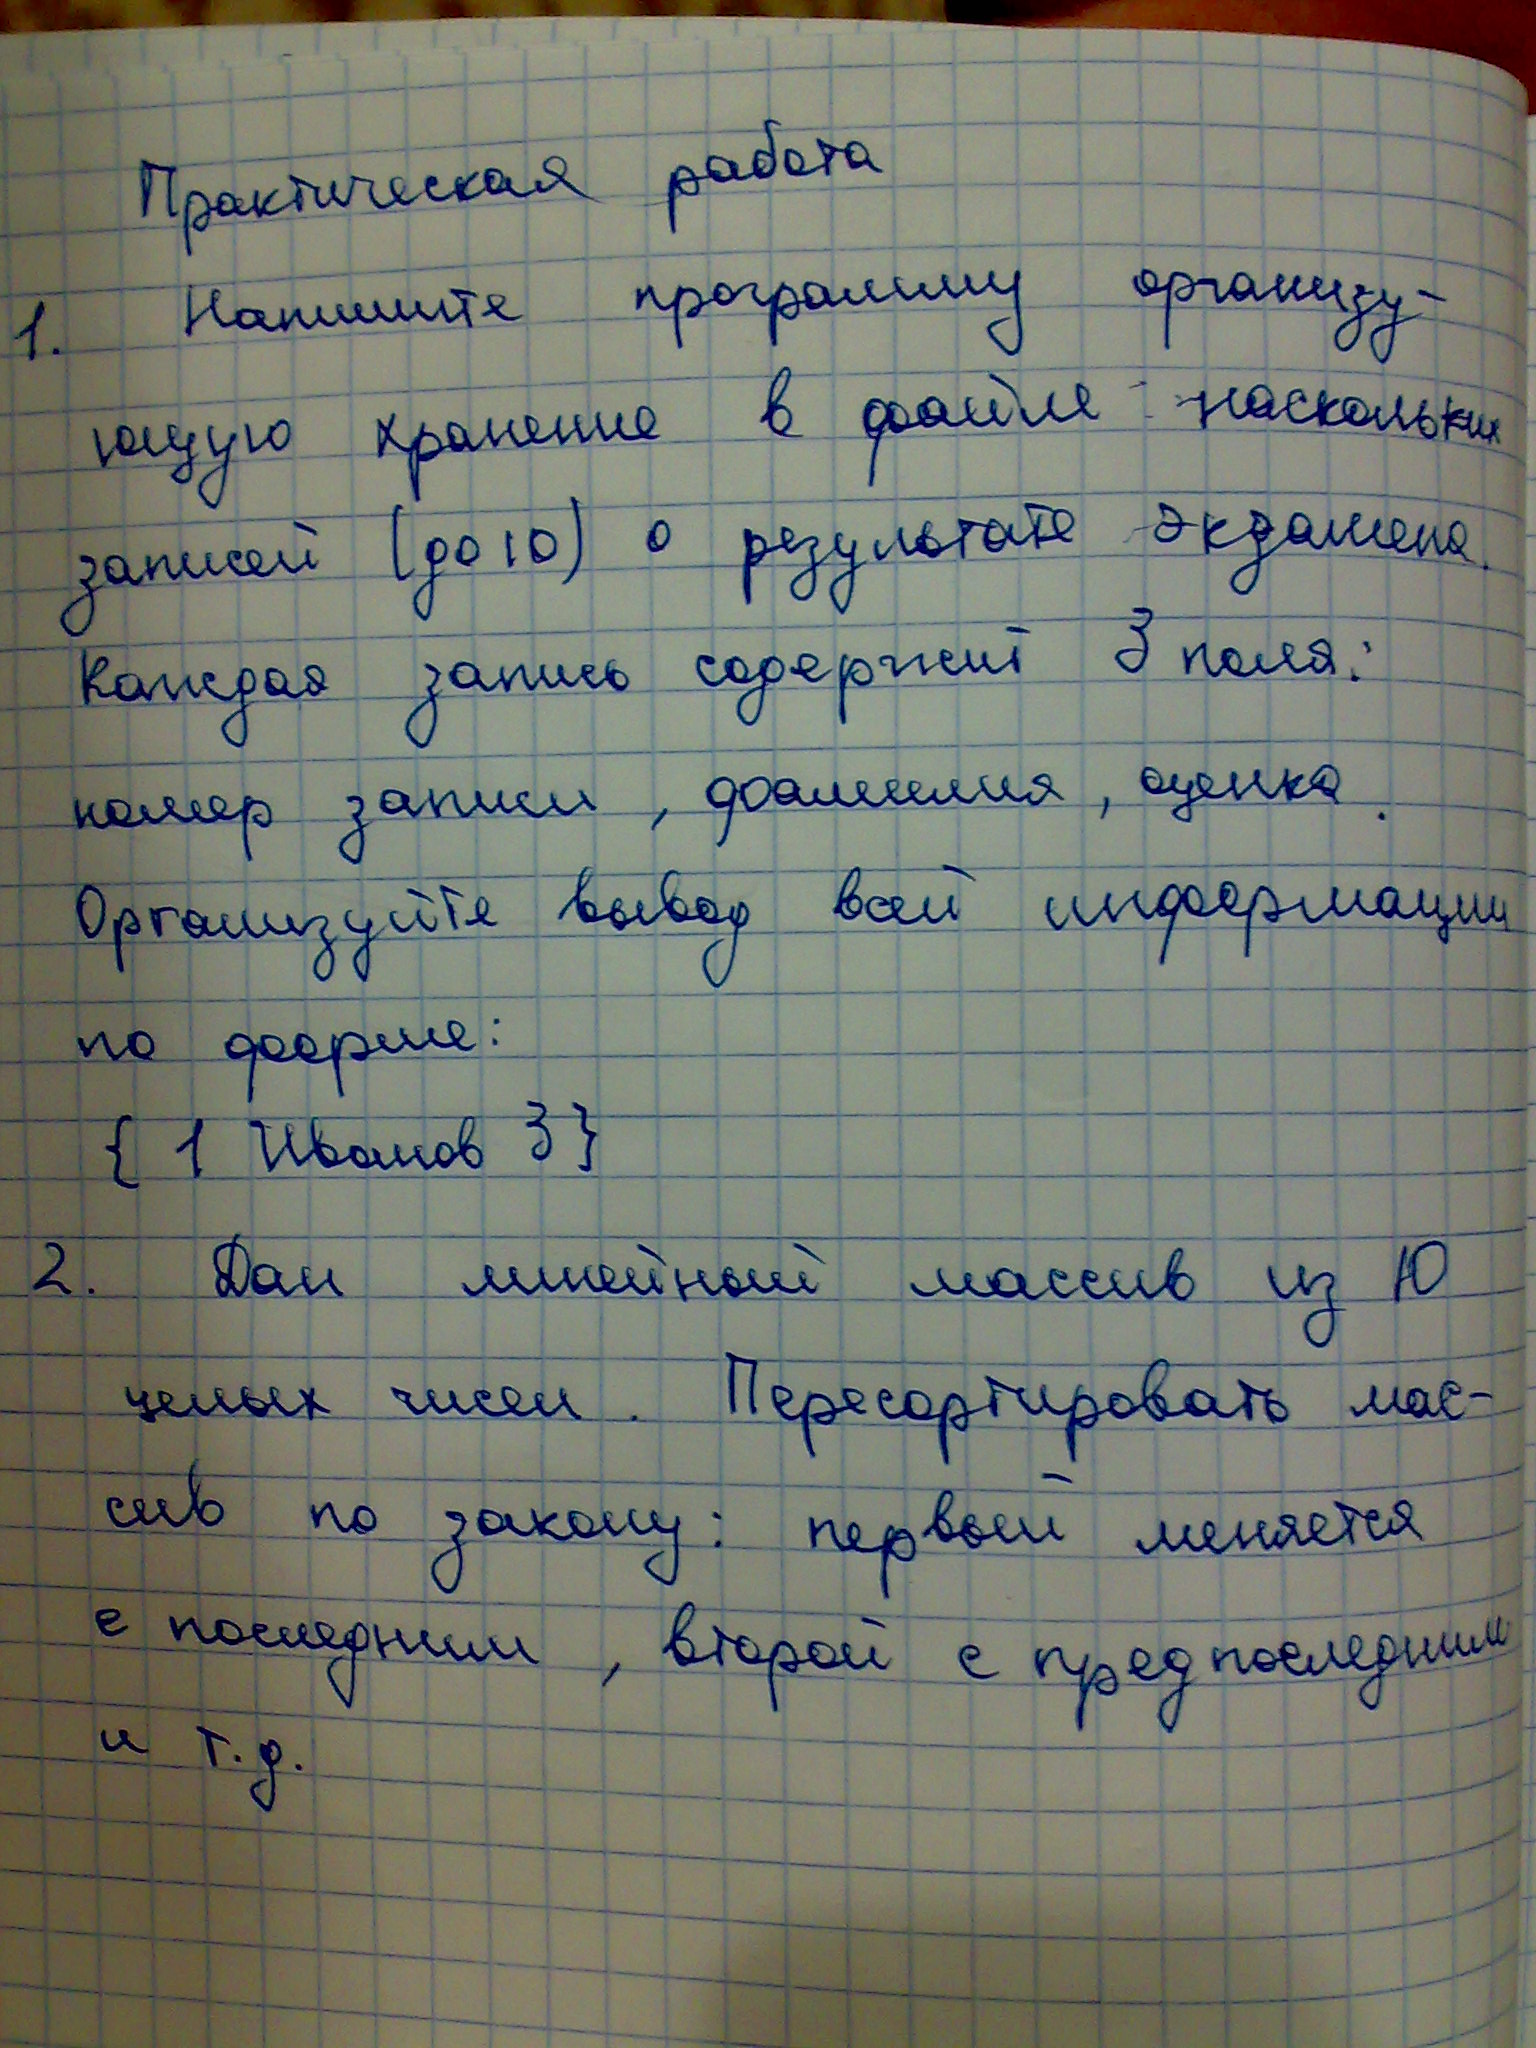 Практическая работа
1. Напишите программу организу-
ющую хранение в файле наскольких
записей (до 10) о результате экзамена.
Каждая запись содержит 3 поля:
номер записи, фамилия, оценка.
Организуйте вывод всей информации
по форме:
{ 1 Иванов 3}
2. Дан линейный массив из 10
целых чисел. Пересортировать мас-
сив по закону: первый меняется
с последним, второй с предпоследним
и т.д.